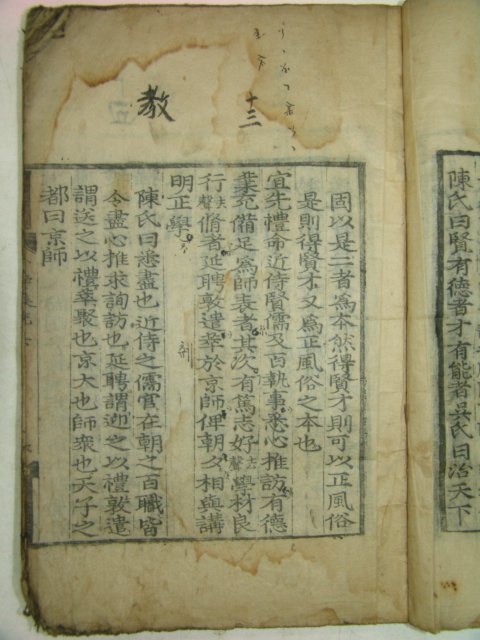 陳氏曰賢有德者才有能者吳氏曰治天下
十三
教
固以是二者爲本然得賢才則可以正風俗
是則得賢才又爲正風俗之本也
宜先禮命近侍賢儒及百執事悉心推訪有德
業充備足爲師表者其次有篤志好去聲學材良
行去聲脩者延聘敦遣萃於京師俾朝夕相與講
明正學
陳氏曰悉盡也近侍之儒官在朝之百職皆
令盡心推求詢訪也延聘謂迎之以禮敦遣
謂送之以禮萃聚也京大也師衆也天子之
都曰京師